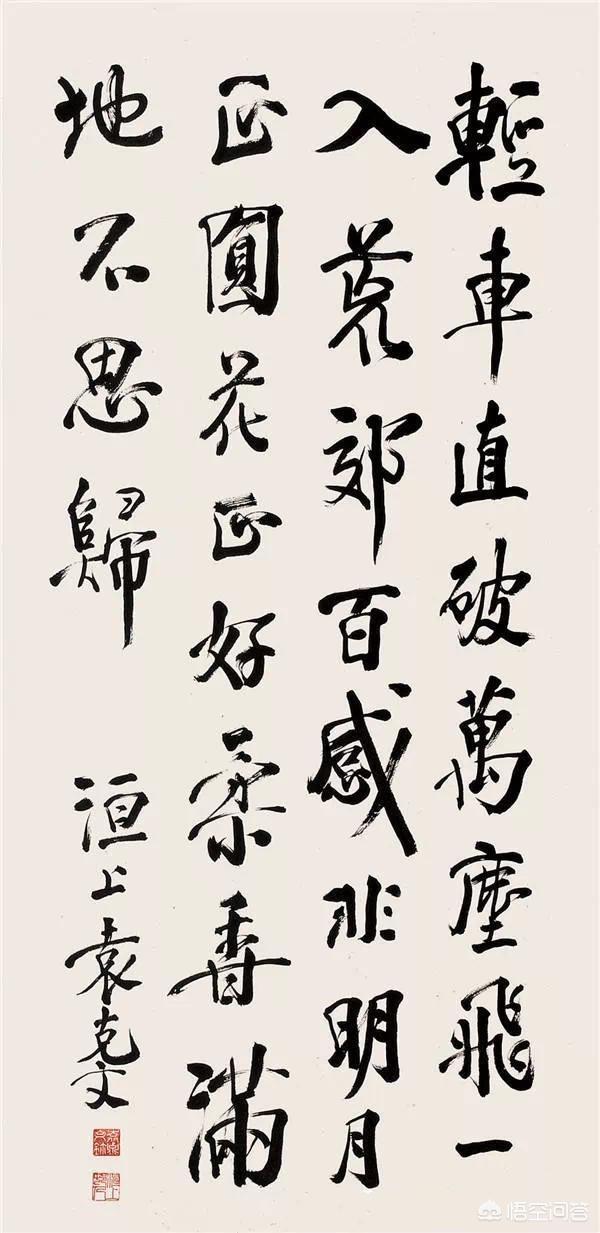 輕車直破萬塵飛一
入荒郊百感非明月
正圓花正好柔香滿
地不思歸
洹上袁克文
悟空问答